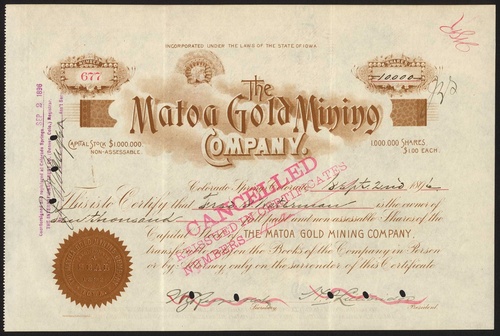 INCORPORATED UNDER THE LAWS OF THE STATE OF IOWA
677
10000
The
Matoa Gold Mining
COMPANY.
CAPITAL STOCK $1,000,000.
NON-ASSESSABLE.
1,000,000 SHARES
$1.00 EACH.
SEP 2 1896
Colorado Springs, Colorado, Sept 2nd 1896
This is to Certify that is the owner of
Ten thousand full paid and non assessable Shares of the
Capital Stock of THE MATOA GOLD MINING COMPANY.
transferable on the Books of the Company in Person
or by Attorney only on the surrender of this Certificate
CANCELLED
REISSUED IN CERTIFICATES
NUMBERS
SEAL
Secretary
President